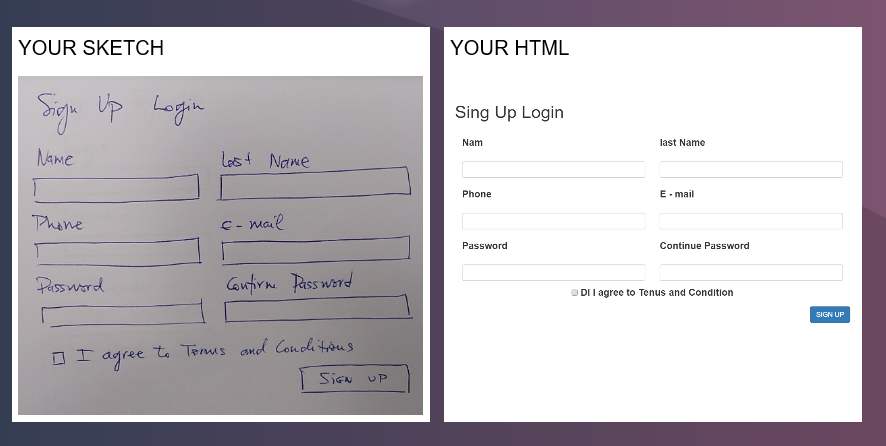 YOUR SKETCH
Sign Up Login
Name Last Name
Phone E-mail
Password Confirm Password
I agree to Terms and Conditions
SIGN UP
YOUR HTML
Sing Up Login
Nam last Name
Phone E - mail
Password Continue Password
DI I agree to Tenus and Condition
SIGN UP